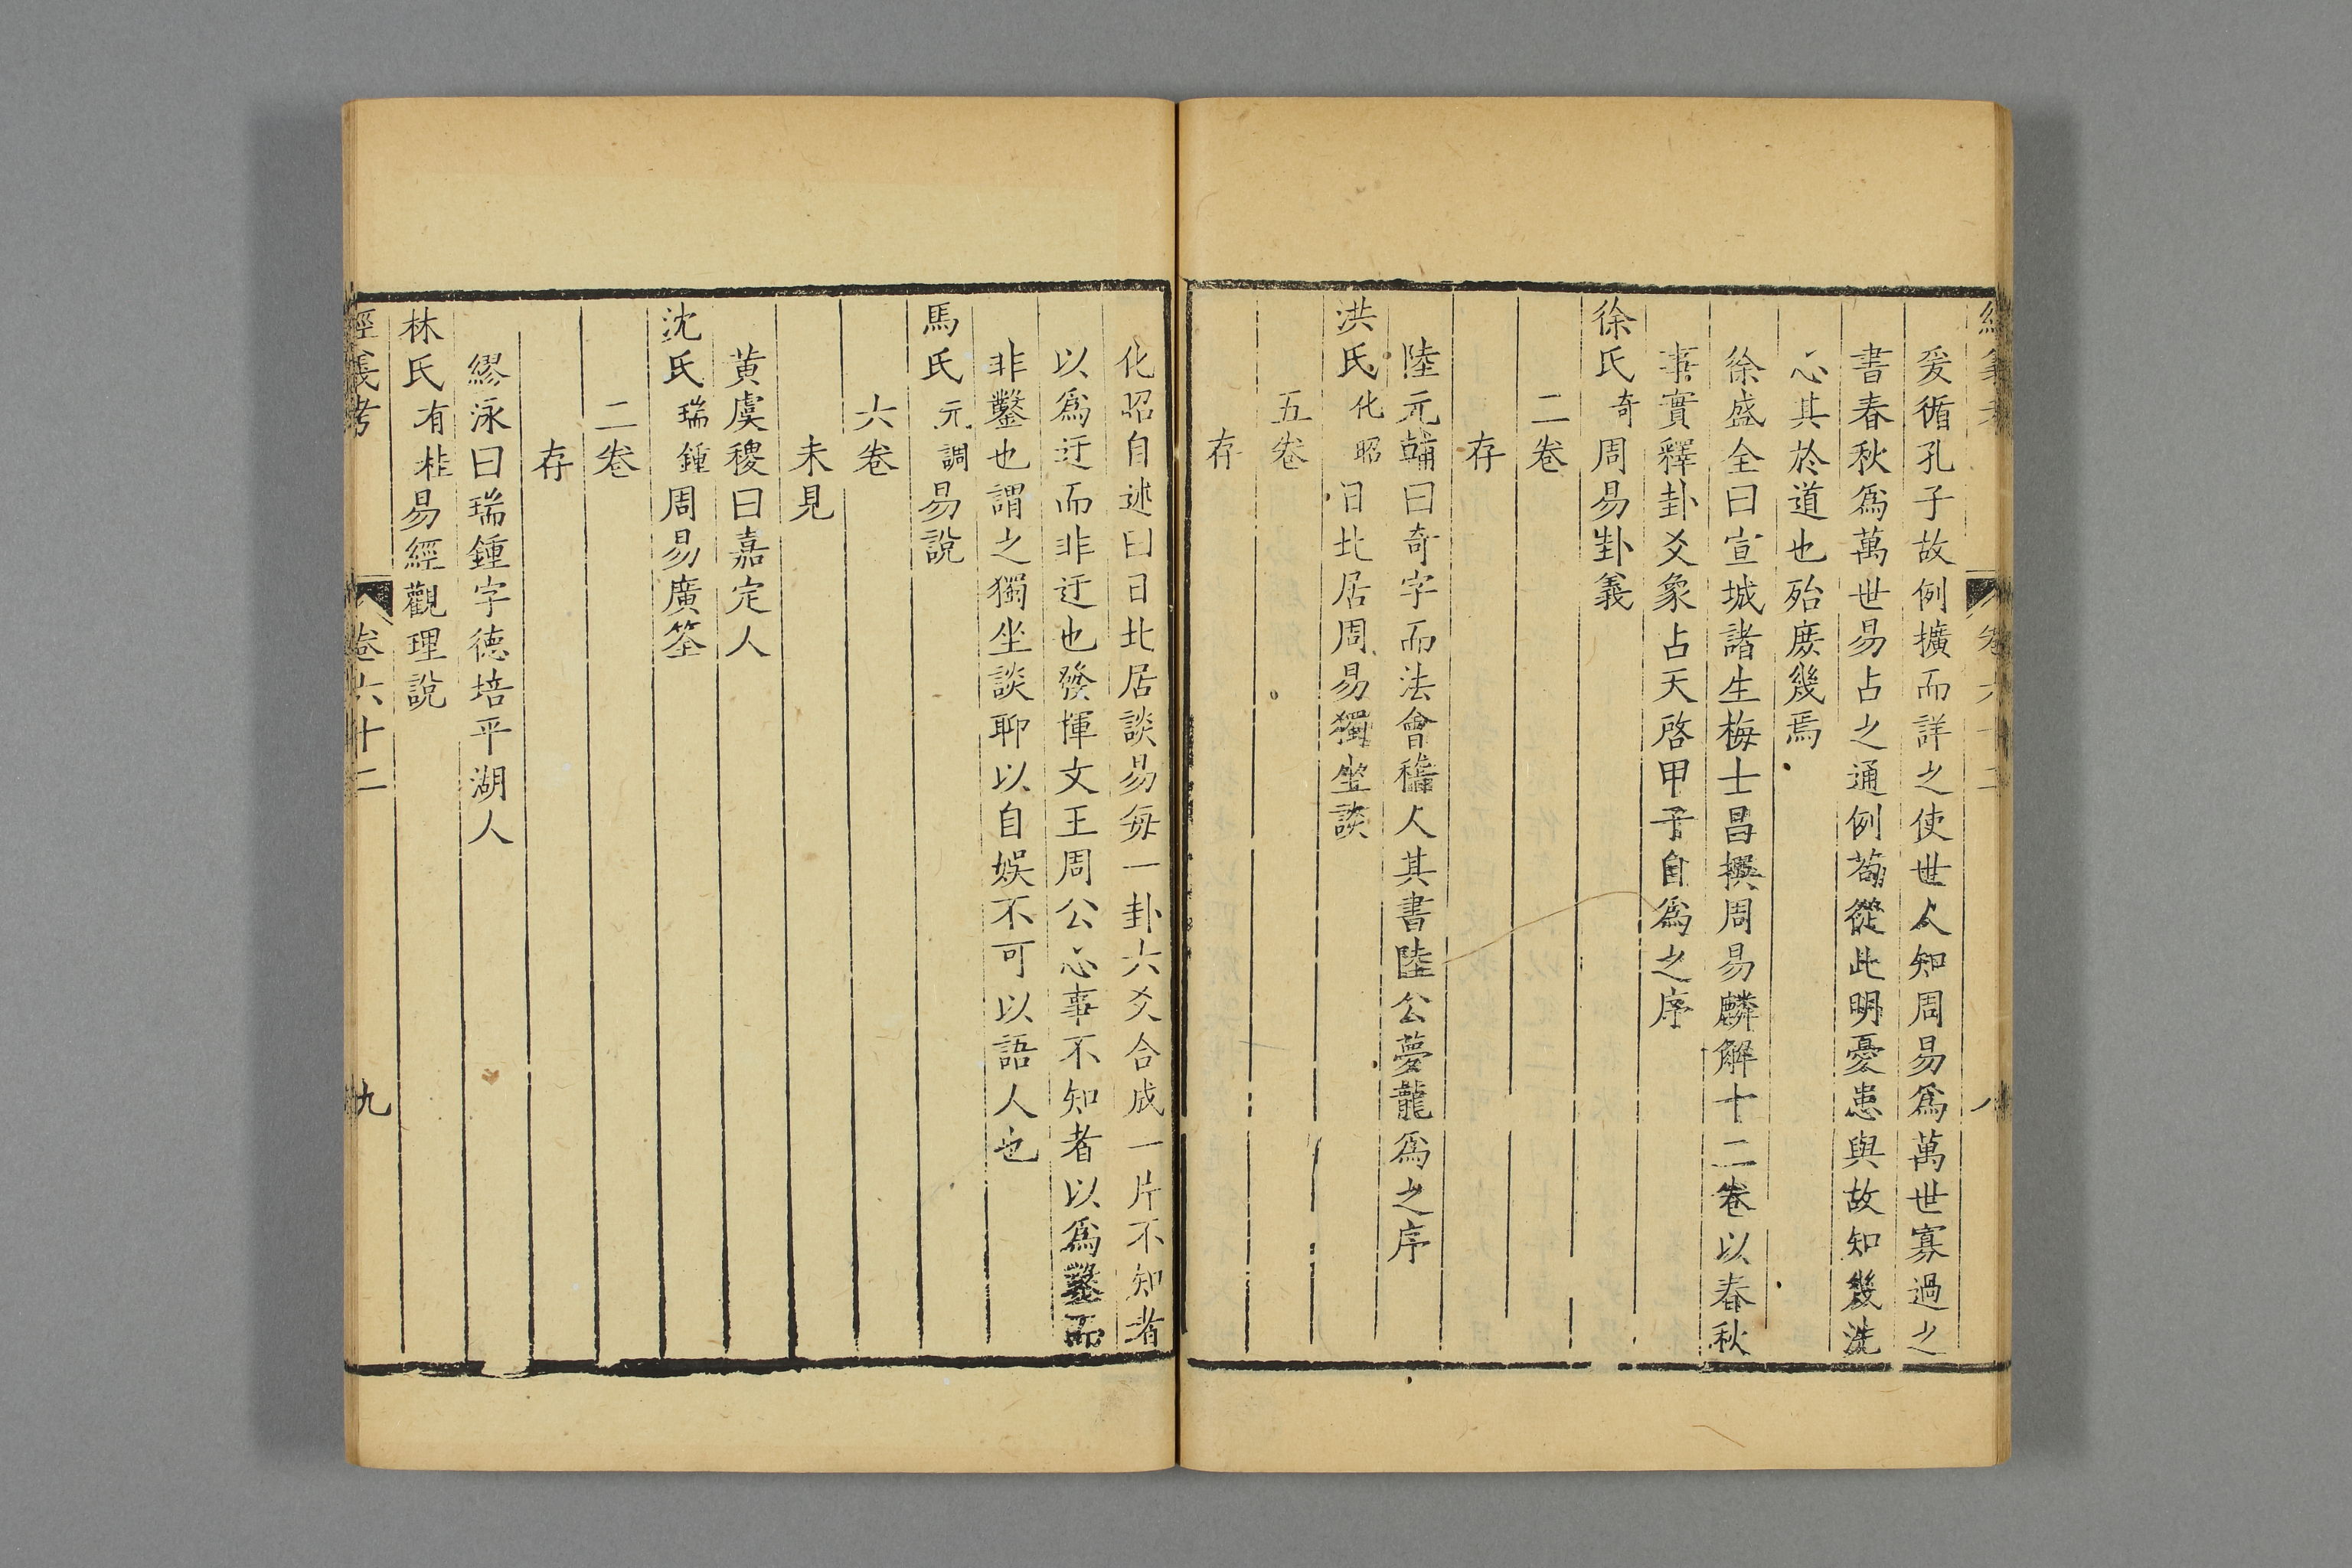 經義考 卷六十二 八
爰循孔子故例擴而詳之使世人知周易爲萬世寡過之
書春秋爲萬世易占之通例苟從此明憂患與故知幾洗
心其於道也殆庶幾焉
徐盛全曰宣城諸生梅士昌撰周易麟解十二卷以春秋
事實釋卦爻象占天啓甲子自爲之序
徐氏奇周易卦義
二卷
存
陸元輔曰奇字而法會稽人其書陸公夢龍爲之序
洪氏化昭日北居周易獨坐談
五卷
存
化昭自述曰日北居談易每一卦六爻合成一片不知者
以爲迂而非迂也發揮文王周公心事不知者以爲鑿而
非鑿也謂之獨坐談聊以自娛不可以語人也
馬氏元調易說
六卷
未見
黃虞稷曰嘉定人
沈氏瑞鍾周易廣筌
二卷
存
繆泳曰瑞鍾字德培平湖人
林氏有桂易經觀理說
經義考 卷六十二 九